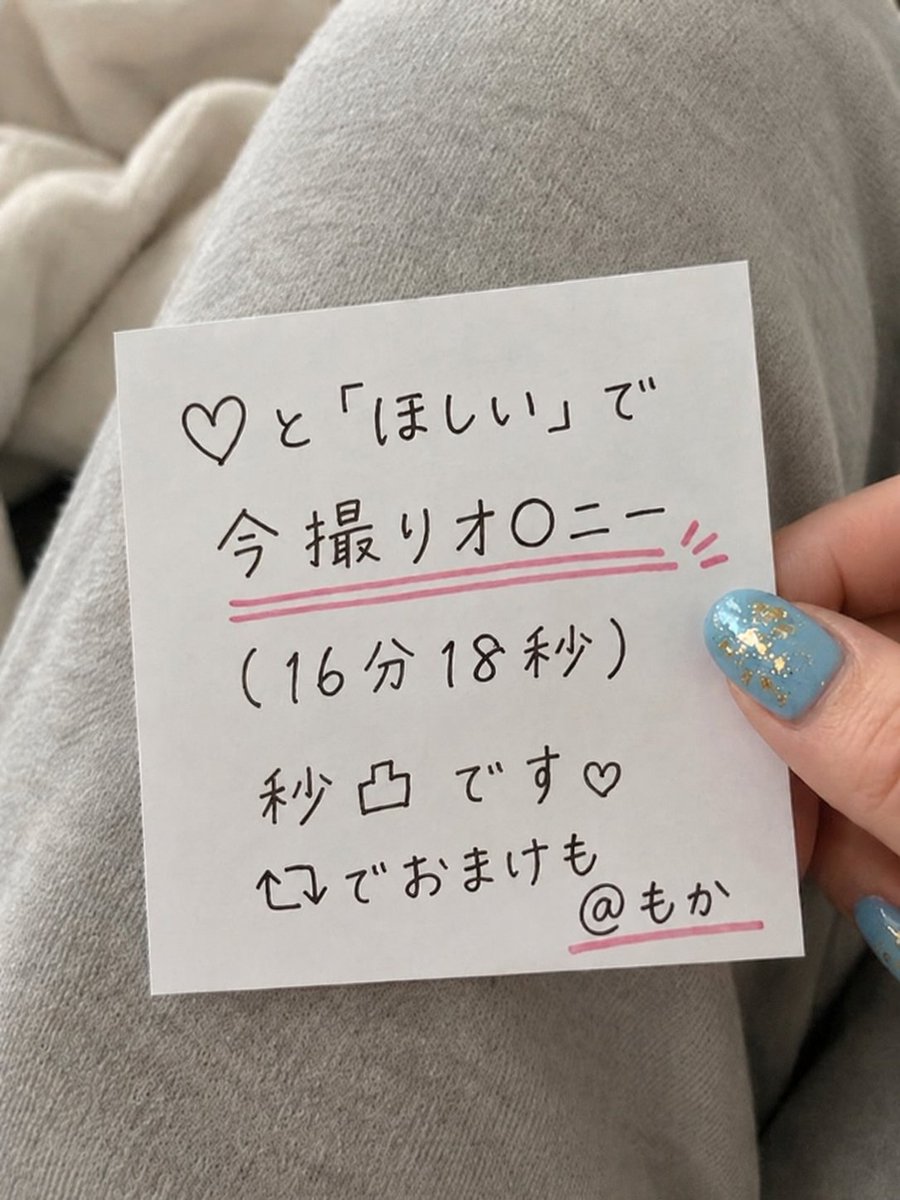 ♡と「ほしい」で
今撮りオ〇ニー
(16分18秒)
秒凸です♡
🔁でおまけも
@もか